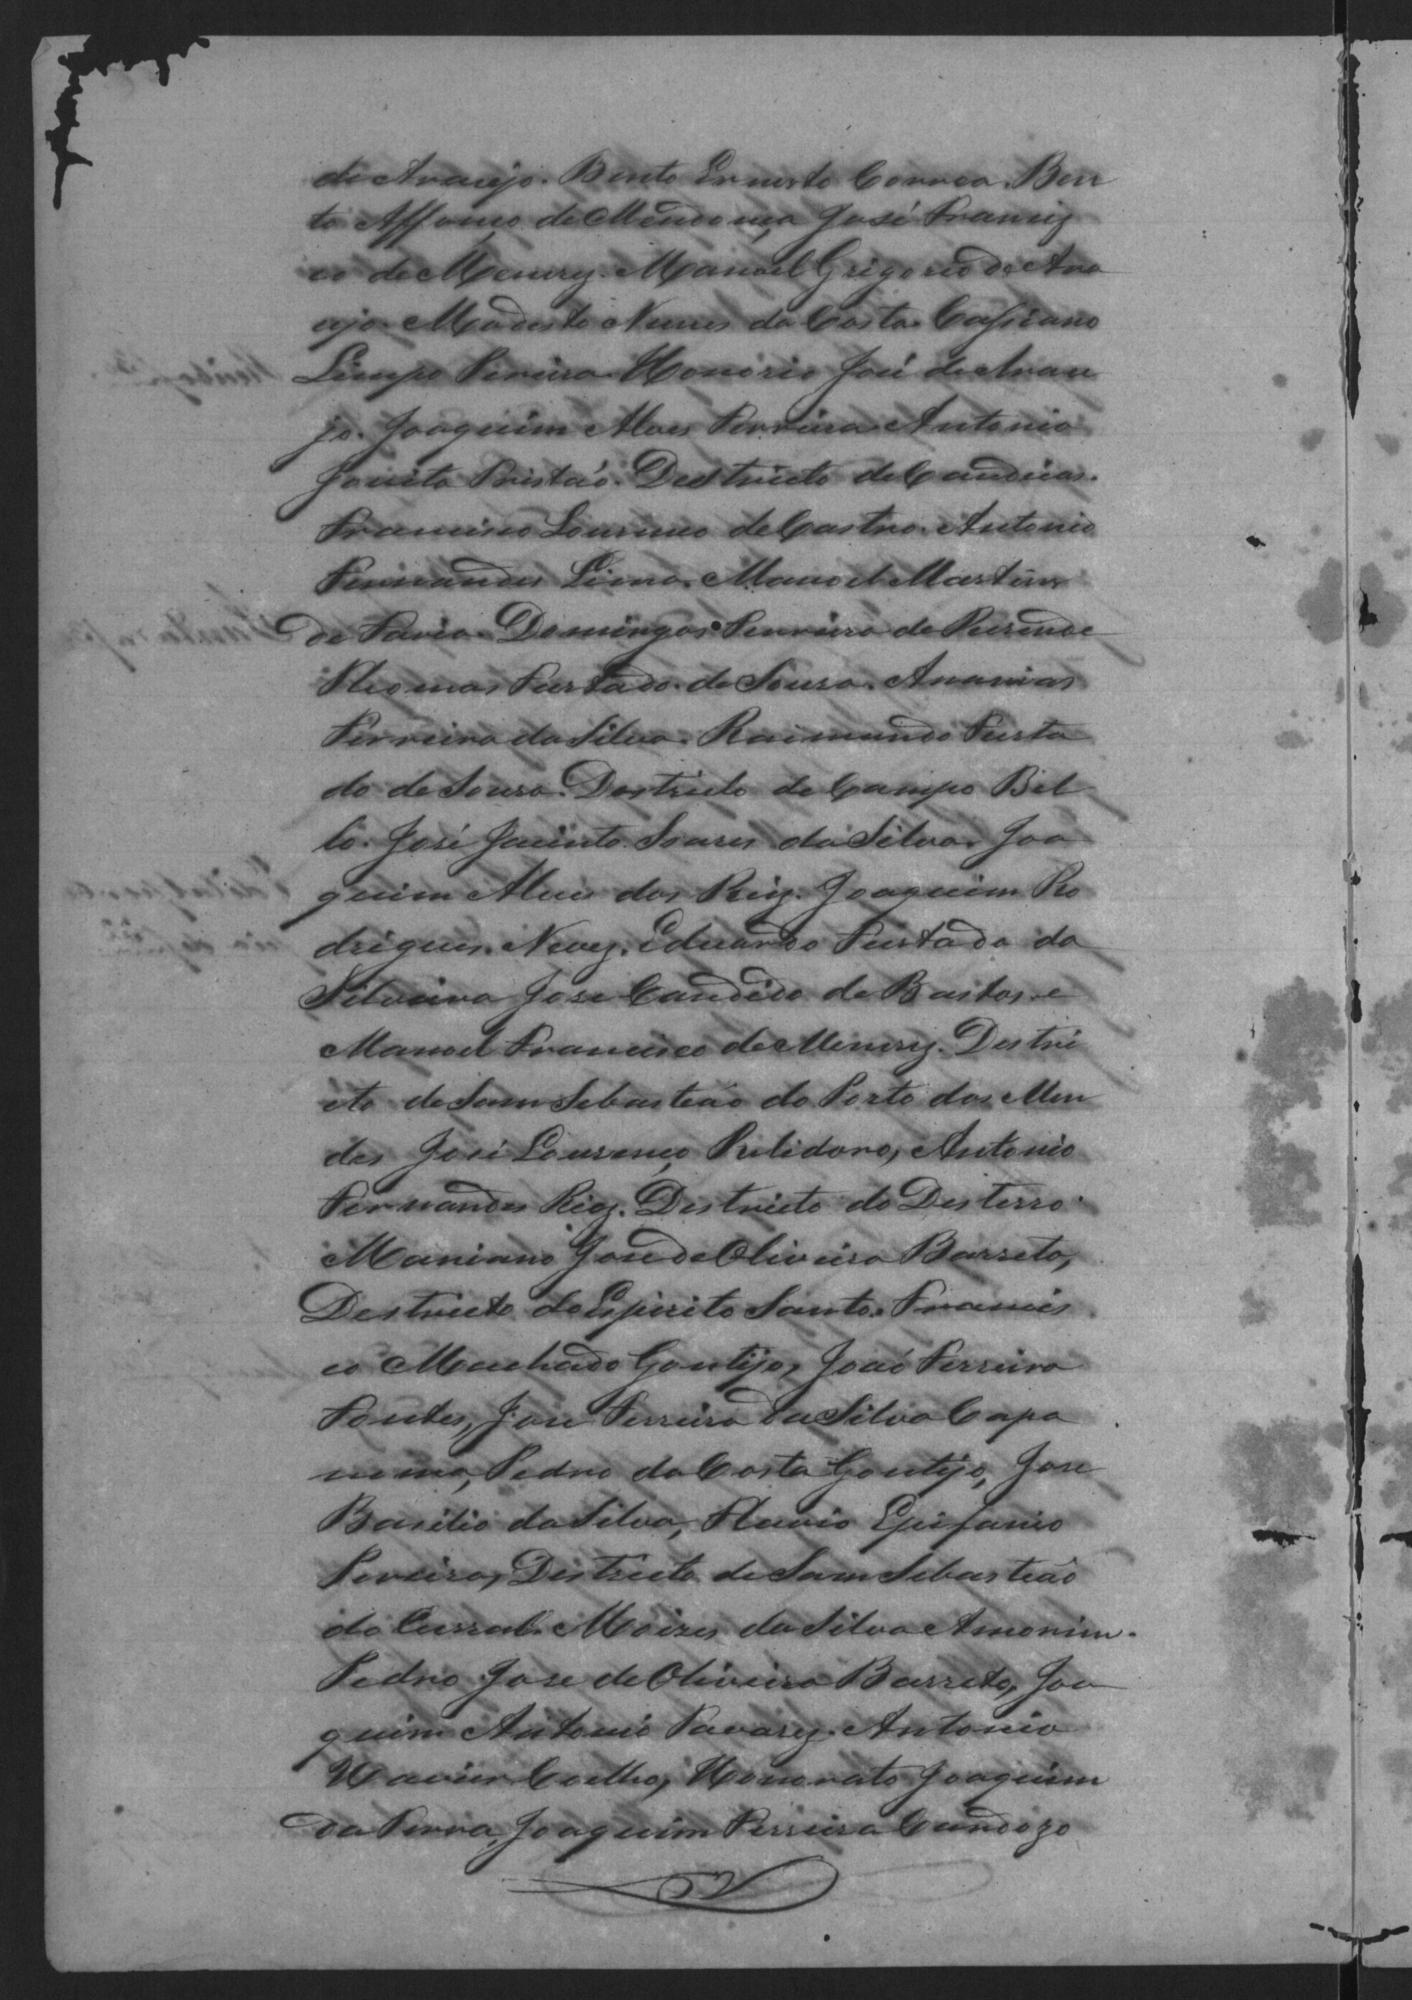 de Araujo. Bento Ernesto Correa. Ben
to Affonço de Mendonça José Francis
co de Menezes. Manoel Grigorio de Ara
ujo. Modesto Nunes da Costa. Cassiano
Limpo Pereira. Honorio José de Arau
jo. Joaquim Alves Ferreira. Antonio
Jovita Tristaó. Destricto de Candeias.
Francisco Lourenço de Castro. Antonio
Fernandes Lima. Manoel Martins
de Faria. Domingos Ferreira de Rezende
Thomas Furtado de Souza. Ananias
Ferreira da Silva. Raimundo Furta
do de Souza. Destricto de Campo Bel
lo. José Jacinto Soares da Silva. Joa
quim Alves dos Reis. Joaquim Ro
drigues Neves. Eduardo Furtado da
Silveira José Candido de Bastos e
Manoel Francisco de Menezes. Destri
cto de Sam Sebastiaó do Porto dos Men
des José Lourenço Pulidoro, Antonio
Fernandes Reis. Destricto do Desterro.
Maniano José de Oliveira Barreto,
Destricto do Espirito Santo. Francis
co Machado Gontijo, Joaó Ferreira
Pontes, José Ferreira da Silva Capa
nema, Pedro da Costa Gontijo, José
Basilio da Silva, Flavio Epifanio
Pereira, Destricto de Sam Sebastiaó
do Curral. Moizes da Silva Amorim.
Pedro José de Oliveira Barreto, Joa
quim Antonio Tavares. Antonio
Xavier Coelho, Honorato Joaquim
da Terra, Joaquim Ferreira Cardozo